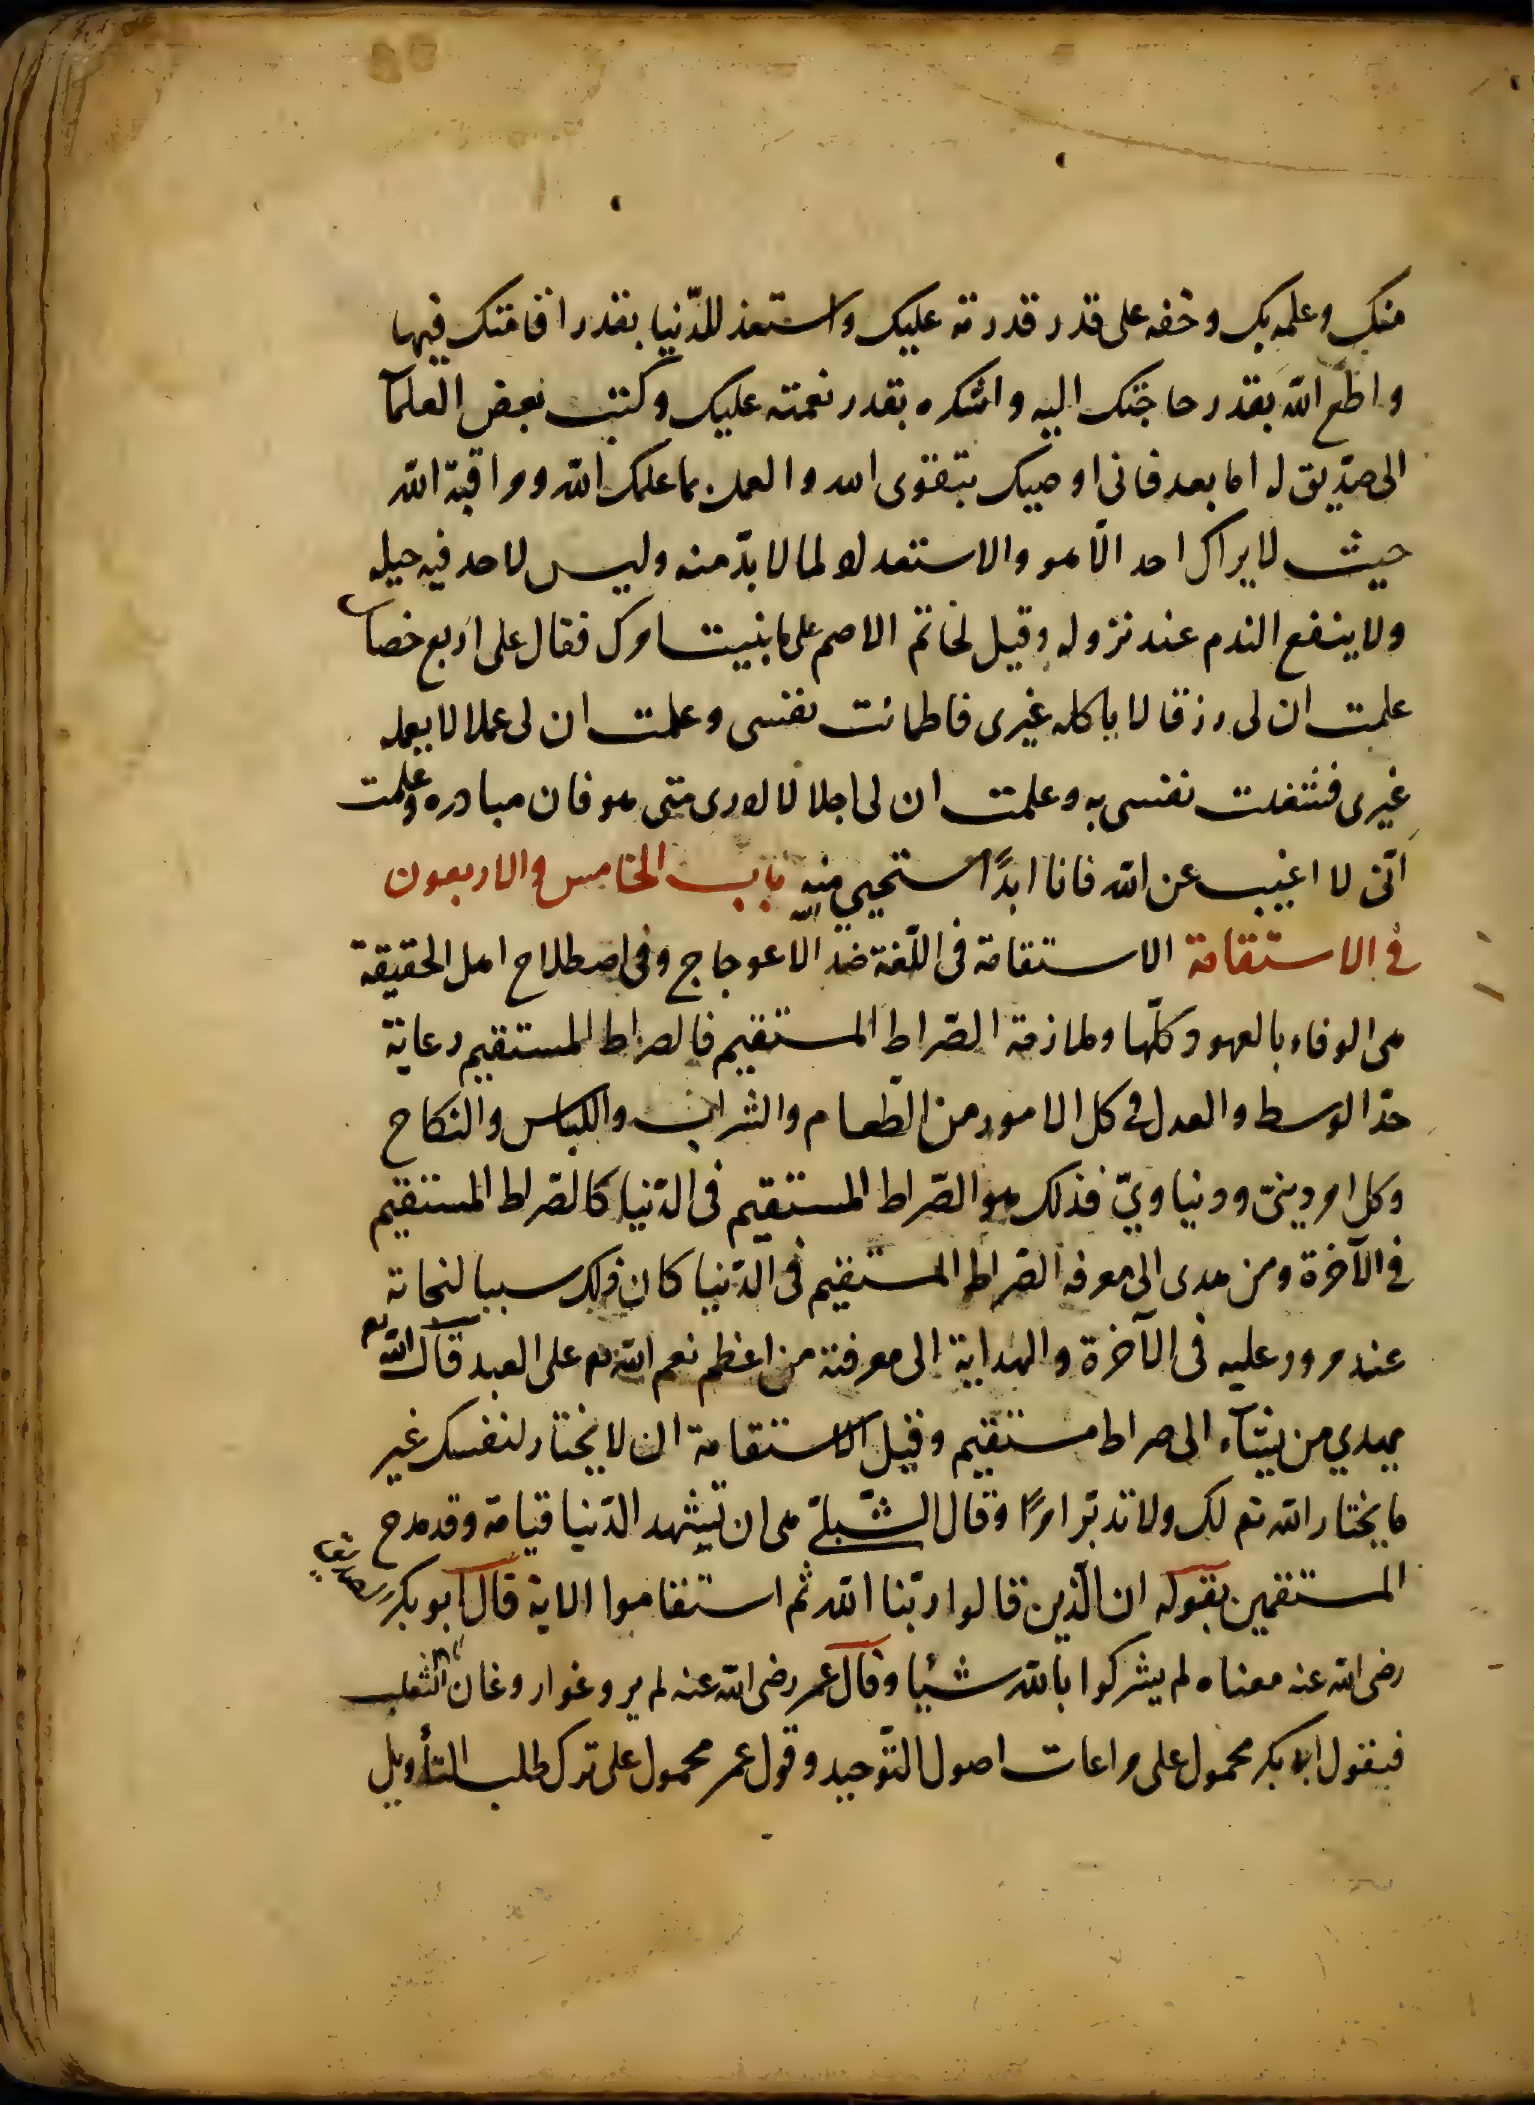 منك وعلمه بك وخفه على قدر قدرته عليك واستعذ للدّنيا بقدر اقامتك فيها
واطع الله بقدر حاجتك اليه واشكره بقدر نعمته عليك وكتب بعض العلمآ
الى صدّيق له اما بعد فانى اوصيك بتقوى الله والعمل بما علمك الله ومراقبة الله
حيث لا يراك احد الّا هو والاستعداد لما لا بدّ منه وليس لاحد فيه حيله
ولا ينفع الندم عند نزوله وقيل لحاتم الاصم على ما بنيت امرك فقال على اربع خصال
علمت ان لى رزقا لا ياكله غيرى فاطمائت نفسى وعلمت ان لى عملا لا يعمله
غيرى فشغلت نفسى به وعلمت ان لى اجلا لا ادرى متى هو فان مبادره وعلمت
انّى لا اغيب عن الله فانا ابدًا استحيي منه باب الخامس والاربعون
فى الاستقامة الاستقامة فى اللّغة ضدّ الاعوجاج وفى اصطلاح اهل الحقيقة
هى الوفاء بالعهود كلّها وملازمة الصّراط المستقيم فالصراط المستقيم رعاية
حدّ الوسط والعدل فى كل الامور من الطّعام والشراب واللباس والنكاح
وكل امر دينىّ ودنياويّ فذلك هو الصّراط المستقيم فى الدّنيا كالصّراط المستقيم
فى الآخرة ومن هدى الى معرفه الصّراط المستقيم فى الدّنيا كان ذلك سببا لنجاته
عند مرور عليه فى الآخرة والهداية الى معرفته من اعظم نعم الله تع على العبد قال الله تع
يهدي من يشآء الى صراط مستقيم وقيل الاستقامة ان لا يختار لنفسك غير
ما يختار الله تع لك ولا تدبّر امرًا وقال الشّبلىّ هى ان تشهد الدّنيا قيامة وقد مدح
المستقمين بقوله ان الّذين قالوا ربّنا الله ثم استقاموا الاية قال ابو بكر الصديق
رضى الله عنه معناه لم يشركوا بالله شيئا وقال عمر رضى الله عنه لم يروغوا روغان الثعلب
فبقول ابو بكر محمول على مراعات اصول التّوحيد وقول عمر محمول على ترك طلب التأويل